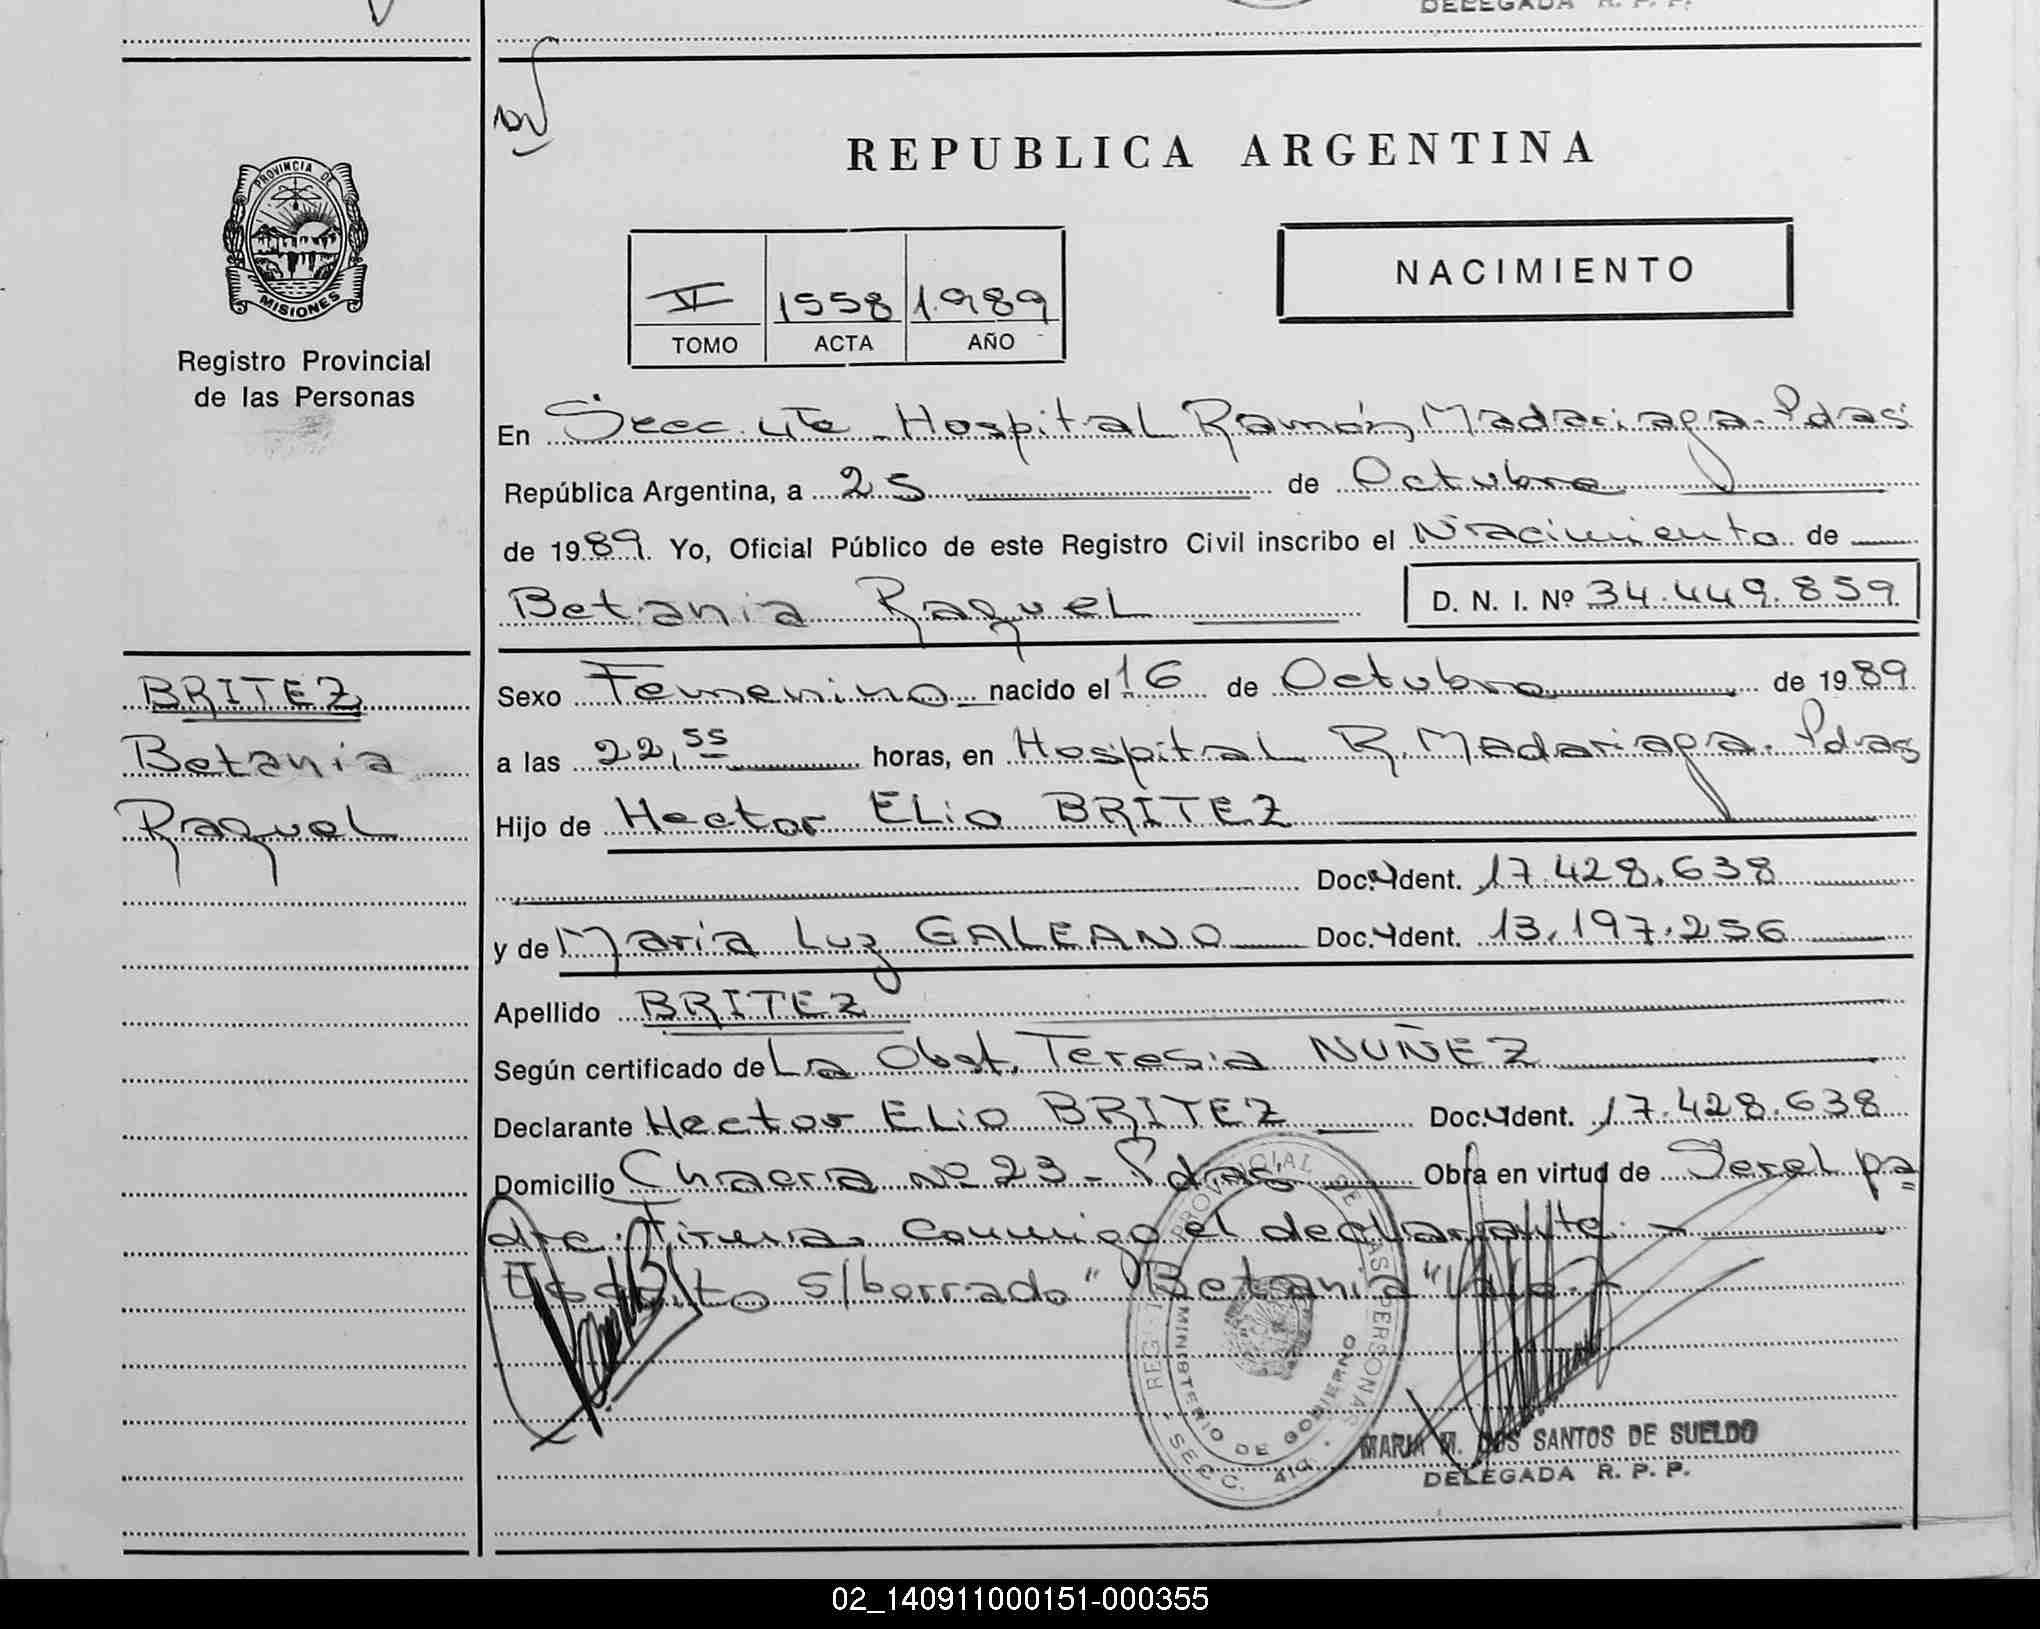 DELEGADA R. P. P.
PROVINCIA DE
MISIONES
Registro Provincial
de las Personas
BRITEZ
Betania
Raquel
REPUBLICA ARGENTINA
VI 1558 1.989
TOMO ACTA AÑO
NACIMIENTO
En Secc. 4ta - Hospital Ramón Madariaga - Pdas
República Argentina, a 25 de Octubre
de 1989. Yo, Oficial Público de este Registro Civil inscribo el Nacimiento de
Betania Raquel D. N. I. Nº 34.449.859
Sexo Femenino nacido el 16 de Octubre de 1989
a las 22,55 horas, en Hospital R. Madariaga. Pdas
Hijo de Hector ELio BRITEZ
Doc. Ident. 17.428.638
y de Maria Luz GALEANO Doc. Ident. 13.197.256
Apellido BRITEZ
Según certificado de La Obst. Teresia NUÑEZ
Declarante Hector ELio BRITEZ Doc. Ident. 17.428.638
Domicilio Chacra nº 23 - Pdas Obra en virtud de Ser el pa
dre. Firma conmigo el declarante. -
Escrito s/borrado "Betania" Vale. -
REG. PROVINCIAL DE LAS PERSONAS
MINISTERIO DE GOBIERNO
SECC. 4ta.
MARIA M. DOS SANTOS DE SUELDO
DELEGADA R. P. P.
02_140911000151-000355